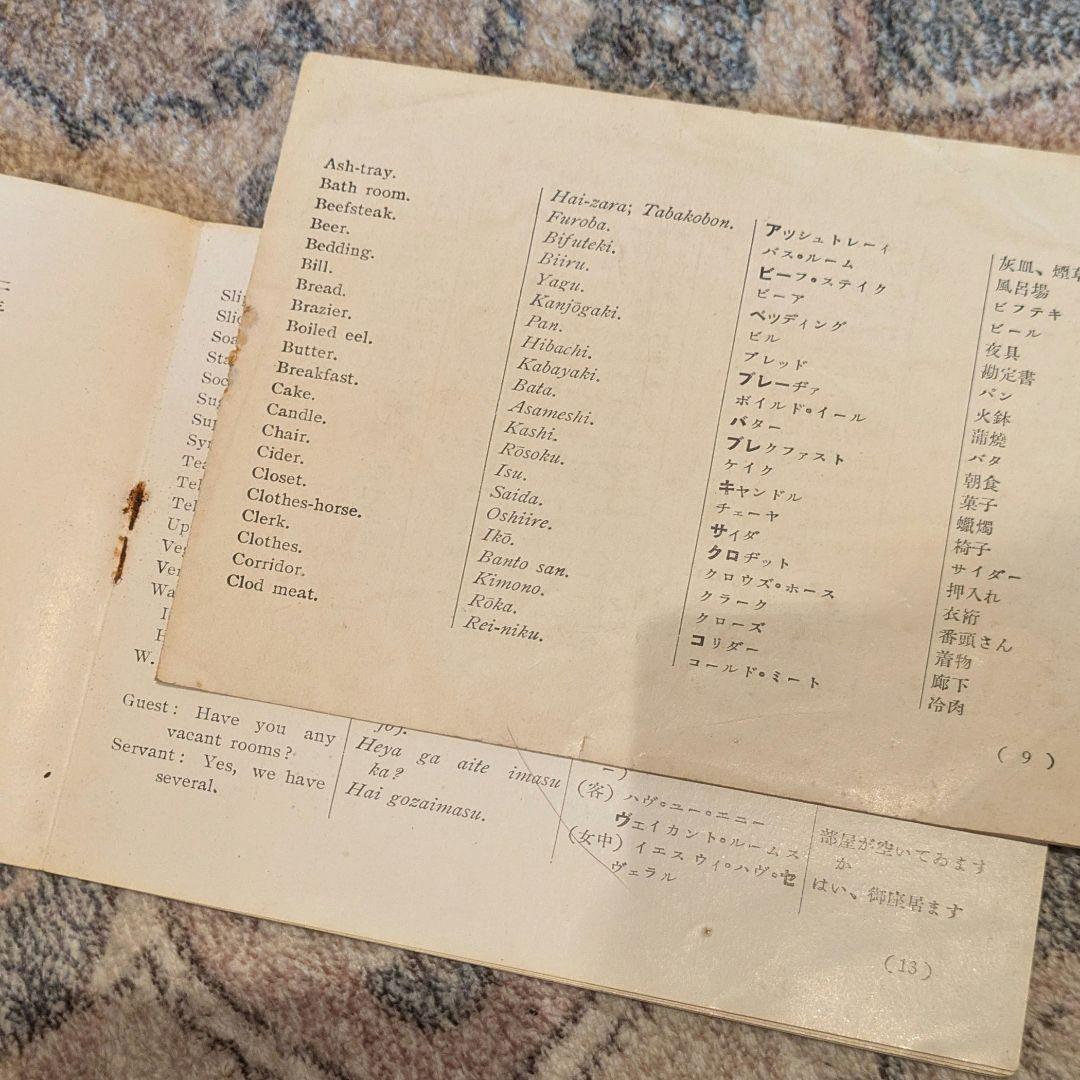 Ash-tray.
Bath room.
Beefsteak.
Beer.
Bedding.
Bill.
Bread.
Brazier.
Boiled eel.
Butter.
Breakfast.
Cake.
Candle.
Chair.
Cider.
Closet.
Clothes-horse.
Clerk.
Clothes.
Corridor.
Clod meat.
Hai-zara; Tabakobon.
Furoba.
Bifuteki.
Biiru.
Yagu.
Kanjōgaki.
Pan.
Hibachi.
Kabayaki.
Bata.
Asameshi.
Kashi.
Rōsoku.
Isu.
Saida.
Oshiire.
Ikō.
Banto san.
Kimono.
Rōka.
Rei-niku.
アッシュトレーィ
バス・ルーム
ビーフ・ステイク
ビーア
ベッディング
ビル
ブレッド
ブレーヂァ
ボイルド・イール
バター
ブレクファスト
ケイク
キャンドル
チェーヤ
サイダ
クロヂット
クロウズ・ホース
クラーク
クローズ
コリダー
コールド・ミート
灰皿、煙草
風呂場
ビフテキ
ビール
夜具
勘定書
パン
火鉢
蒲燒
バタ
朝食
菓子
蠟燭
椅子
サイダー
押入れ
衣桁
番頭さん
着物
廊下
冷肉
(9)
W.
Guest: Have you any
vacant rooms?
Servant: Yes, we have
several.
Heya ga aite imasu
ka?
Hai gozaimasu.
(客) ハヴ・ユー・エニー
ヴェイカント・ルームス
(女中) イエス ウィ・ハヴ・セ
ヴェラル
部屋が空いておます
か
はい、御座居ます
(13)